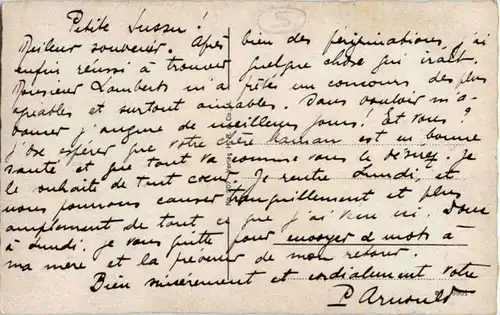 Petite Sussu !
Meilleur souvenir. Après bien des périgrinations, j'ai
enfin réussi à trouver quelque chose qui irait.
Monsieur Lambert m'a prêté un concours des plus
agréables et surtout aimables. Sans vouloir m'a-
vancer j'augure de meilleurs jours ! Et vous ?
j'ose espérer que votre chère Maman est en bonne
santé et que tout va comme vous le désirez. Je
le souhaite de tout cœur. Je rentre Lundi, et
nous pourrons causer tranquillement et plus
amplement de tout ce que j'ai vu ici. Donc
à Lundi. je vous quitte pour envoyer 2 mots à
ma mère et la prévenir de mon retour.
Bien sincèrement et cordialement votre
P Arnould